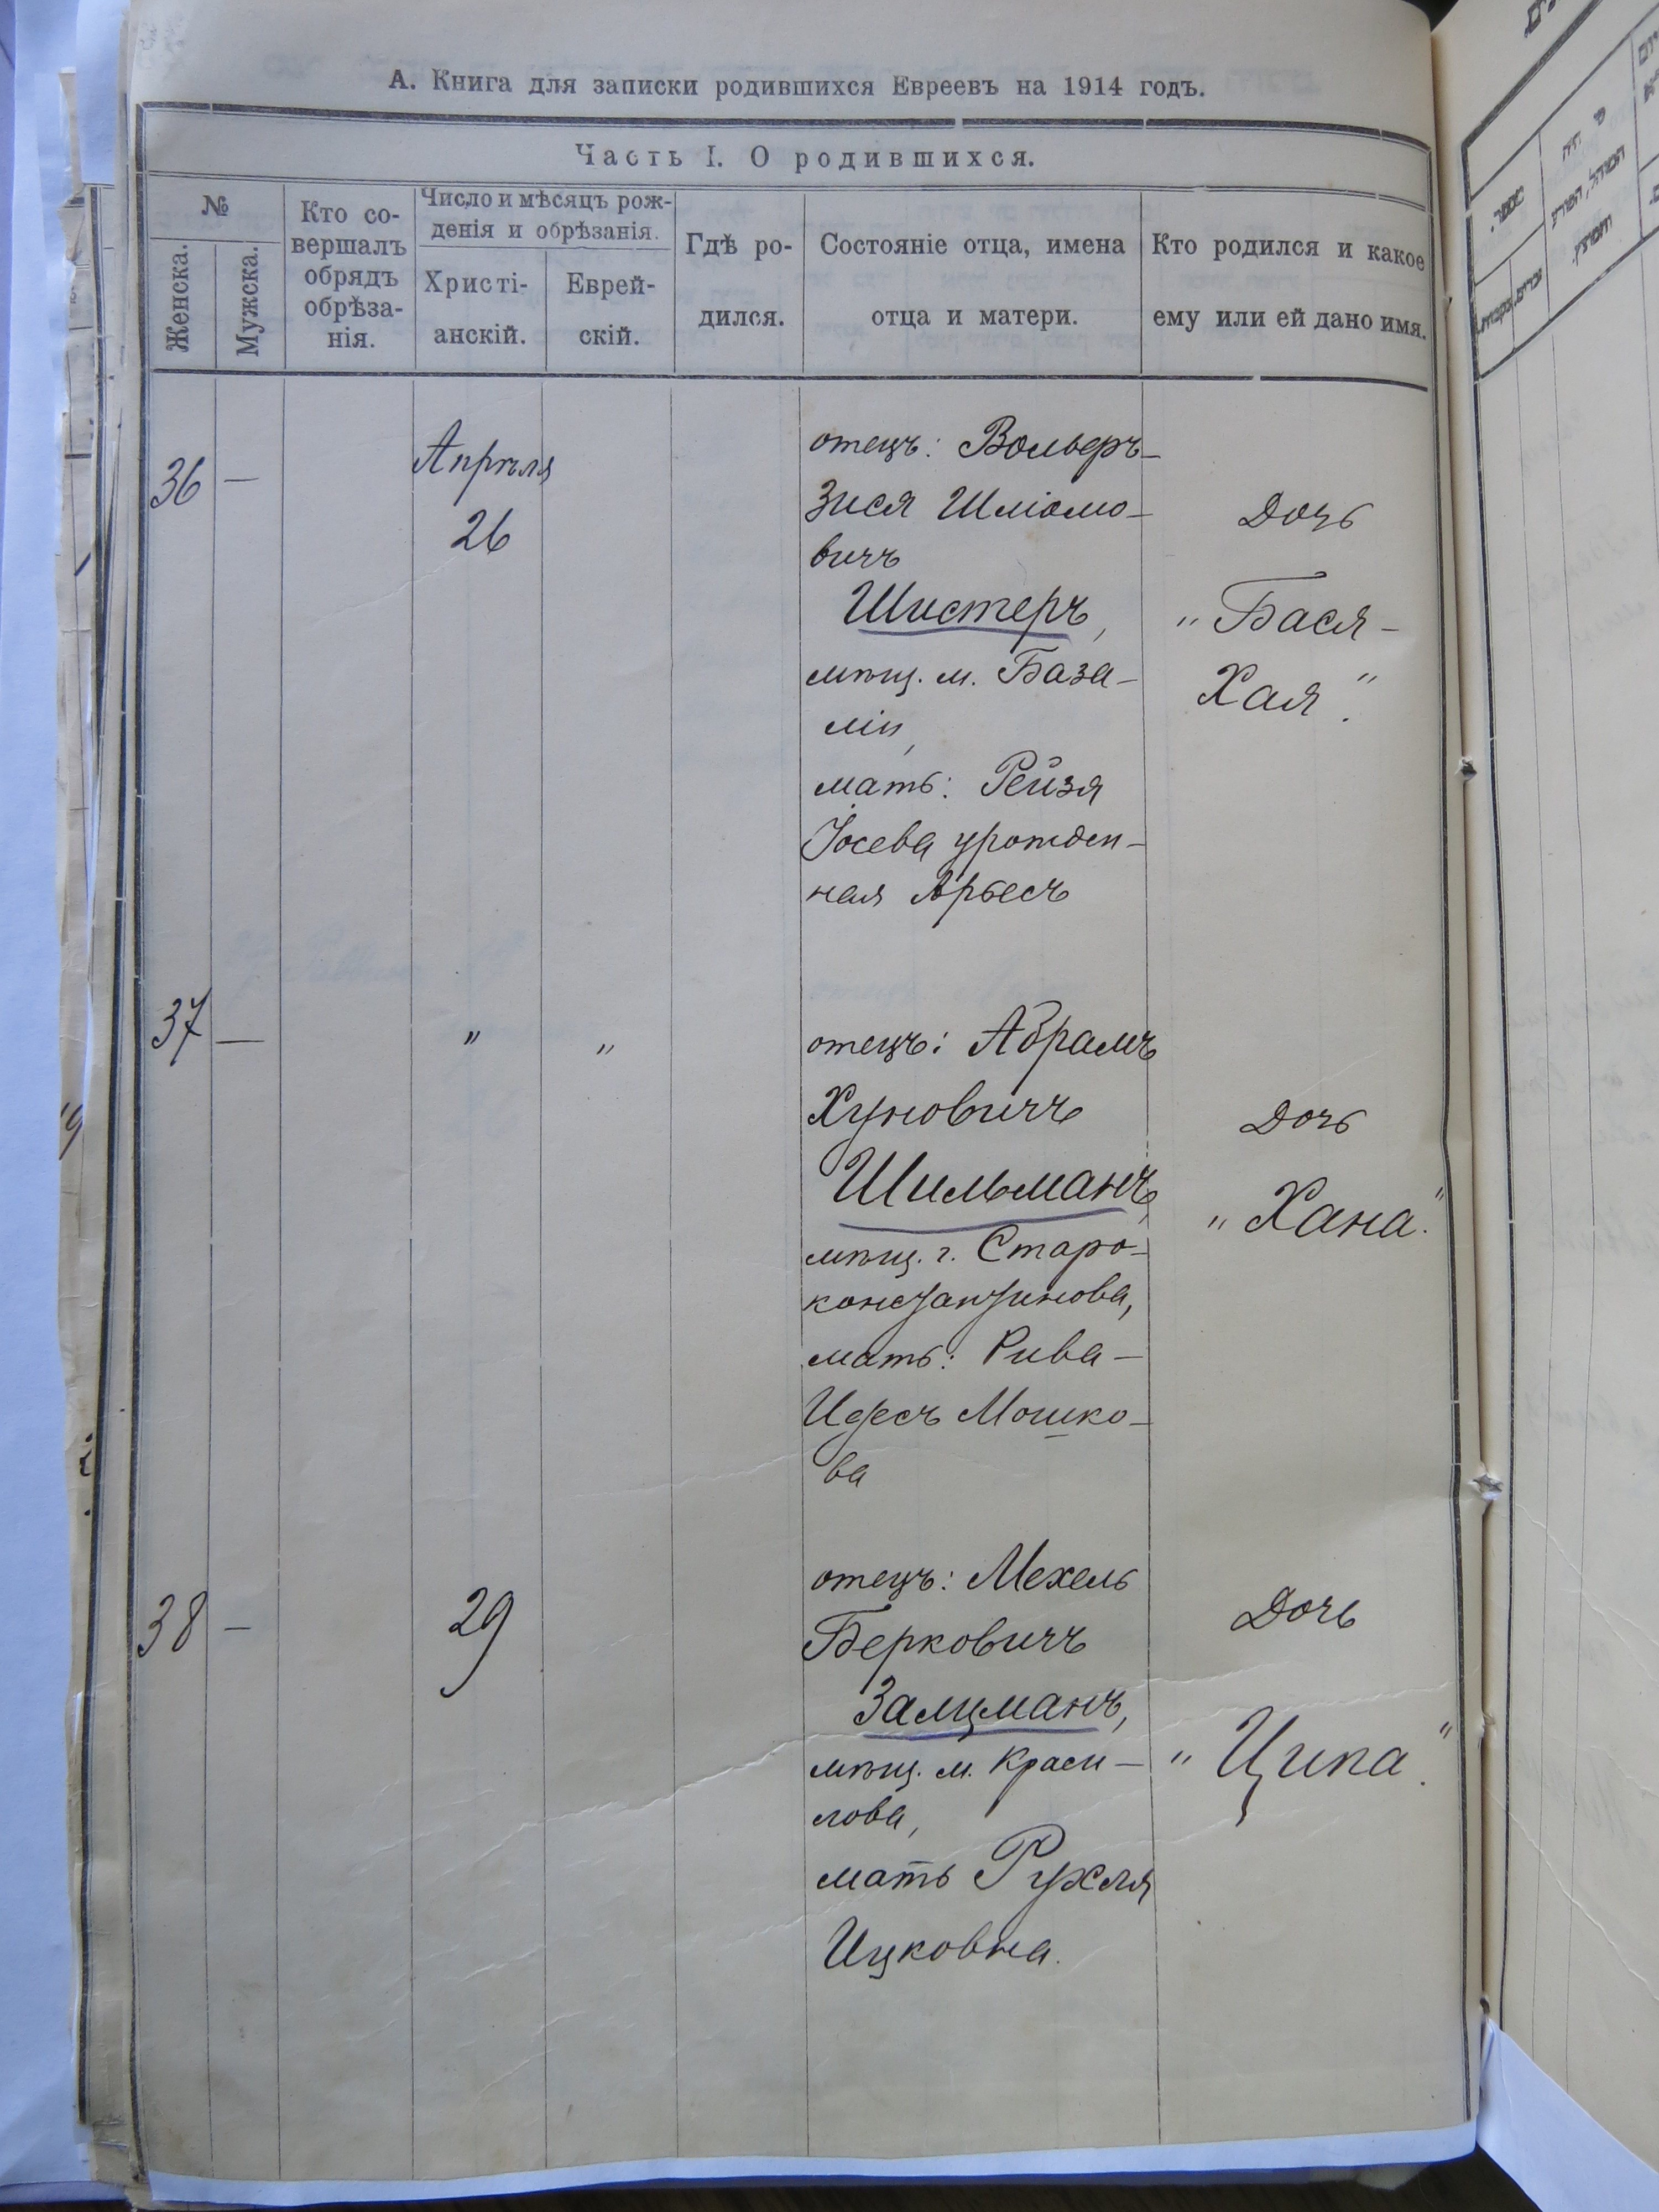 А. Книга для записки родившихся Евреевъ на 1914 годъ.
Часть I. О родившихся.
№
Женска.
Мужска.
Кто со-
вершалъ
обрядъ
обрѣза-
нія.
Число и мѣсяцъ рож-
денія и обрѣзанія.
Христі-
анскій.
Еврей-
скій.
Гдѣ ро-
дился.
Состояніе отца, имена
отца и матери.
Кто родился и какое
ему или ей дано имя.
36 —
Апрѣля
26
отецъ: Вольферъ-
Зися Шліомо-
вичъ
Шистеръ,
мѣщ. м. База-
ліи,
мать: Рейзя
Іосева урожден-
ная Арбесъ
Дочь
„Бася-
Хая".
37 —
„
„
отецъ: Абрамъ
Хуновичъ
Шильманъ,
мѣщ. г. Старо-
константинова,
мать: Рива-
Идесъ Мошко-
ва
Дочь
„Хана".
38 —
29
отецъ: Мехель
Берковичъ
Залцманъ,
мѣщ. м. Краси-
лова,
мать Рухля
Ицковна.
Дочь
„Ципа".